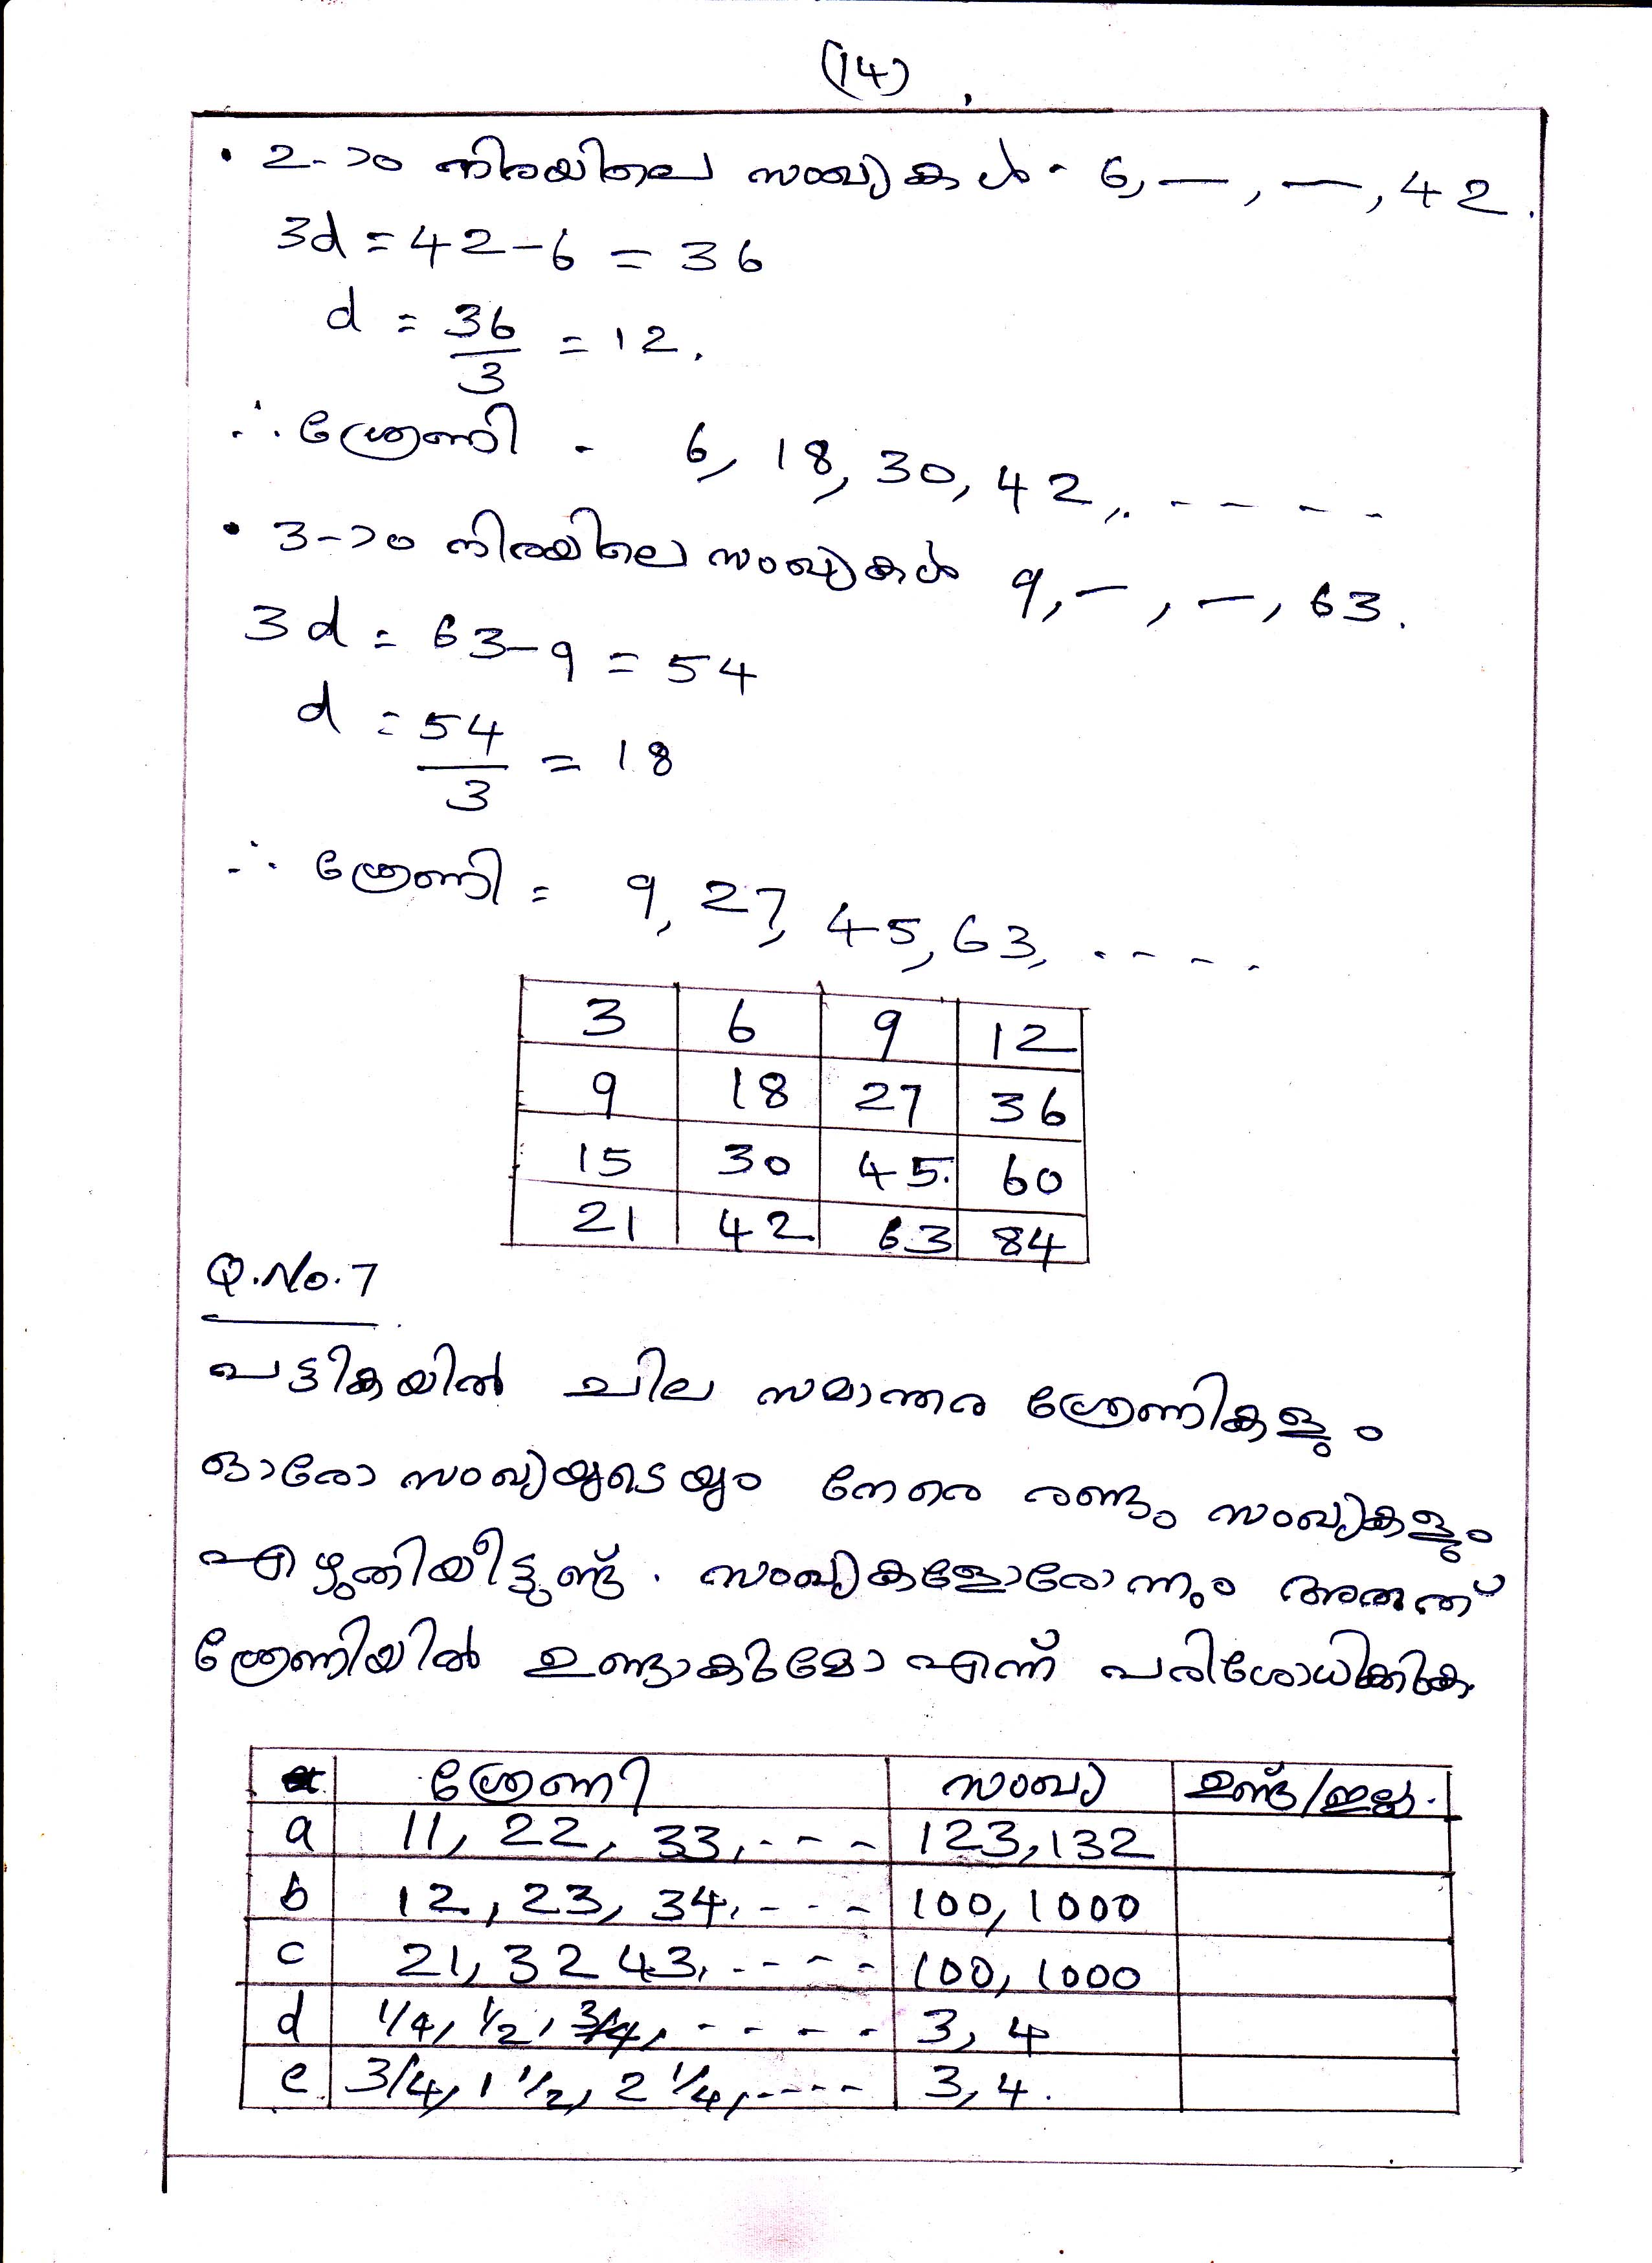 (14)
• 2-ാo നിരയിലെ സംഖ്യകൾ - 6, —, —, 42.
3d = 42-6 = 36
d = 36/3 = 12.
∴ ശ്രേണി - 6, 18, 30, 42, - - - -
• 3-ാo നിരയിലെ സംഖ്യകൾ 9, —, —, 63.
3d = 63-9 = 54
d = 54/3 = 18
∴ ശ്രേണി = 9, 27, 45, 63, - - - -
3 6 9 12
9 18 27 36
15 30 45. 60
21 42 63 84
Q.No.7
പട്ടികയിൽ ചില സമാന്തര ശ്രേണികളും
ഓരോ സംഖ്യയുടെയും നേരെ രണ്ടു സംഖ്യകളും
എഴുതിയിട്ടുണ്ട്. സംഖ്യകളോരോന്നും അതത്
ശ്രേണിയിൽ ഉണ്ടാകുമോ എന്ന് പരിശോധിക്കുക
ശ്രേണി സംഖ്യ ഉണ്ട്/ഇല്ല.
a 11, 22, 33, - - - 123, 132
b 12, 23, 34, - - - 100, 1000
c 21, 32 43, - - - - 100, 1000
d 1/4, 1/2, 3/4, - - - - - 3, 4
e 3/4, 1 1/2, 2 1/4, - - - - 3, 4.